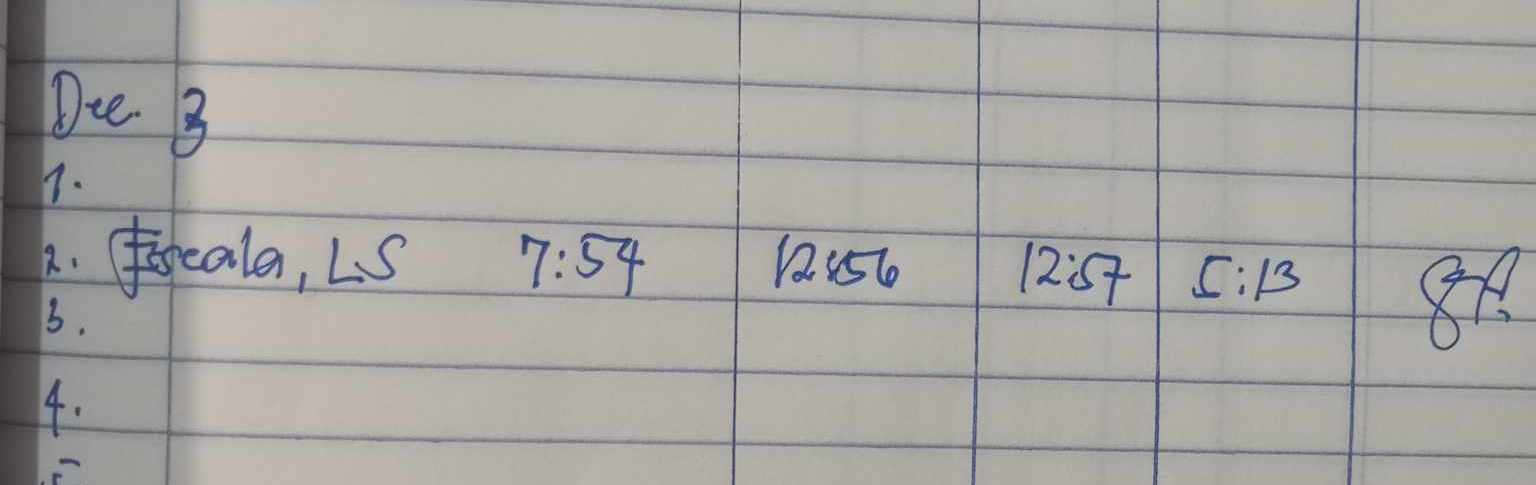 Dec. 3
1.
2. Escala, LS 7:54 12:56 12:57 5:13
3.
4.
5